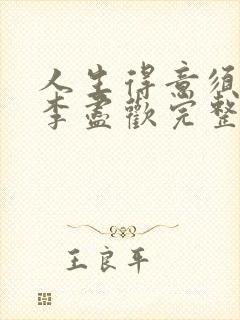 人生得意须
李盡歡完整
王良平